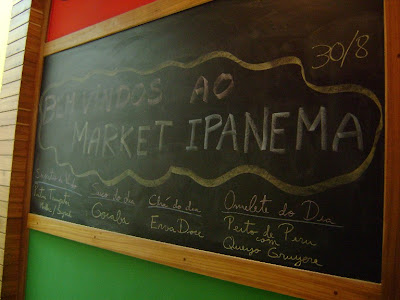 30/8
BEM VINDOS AO
MARKET IPANEMA
Suco do dia
Goiaba
Chá do dia
Erva Doce
Omelete do Dia
Peito de Peru
com
Queijo Gruyere